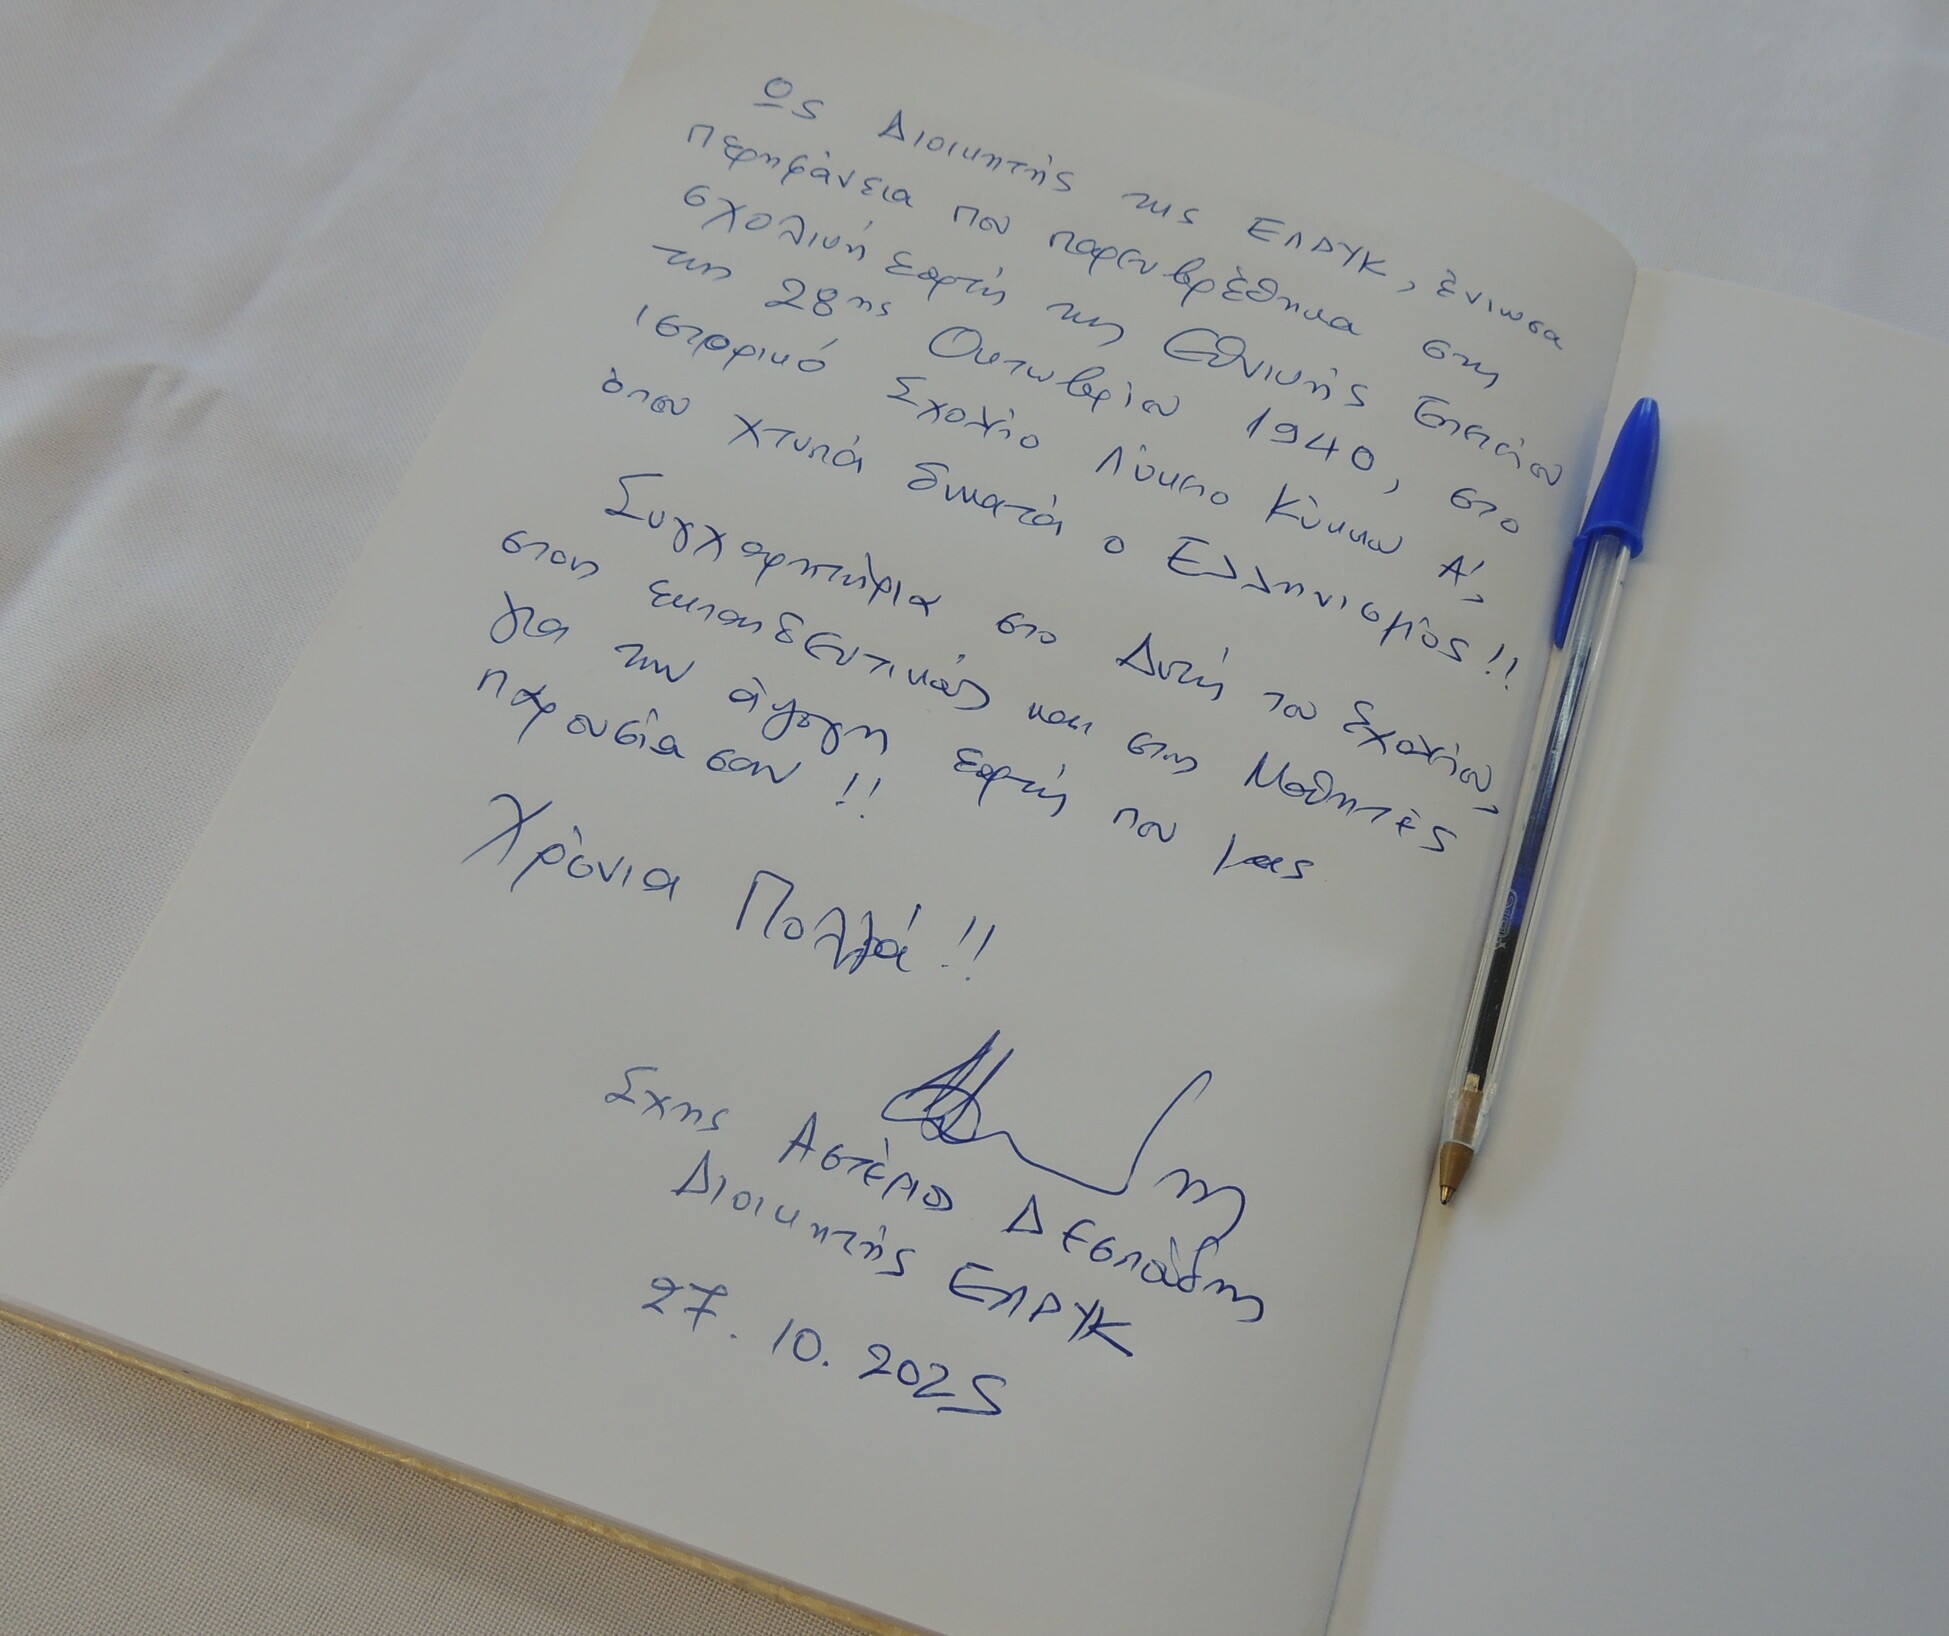 Ως Διοικητής της ΕΛΔΥΚ, ένιωσα
περηφάνεια που παρευβρέθηκα στη
σχολική εορτή της Εθνικής Επετείου
της 28ης Οκτωβρίου 1940, στο
ιστορικό Σχολείο Λύκειο Κύκκου Α',
όπου χτυπά δυνατά ο Ελληνισμός!!
Συγχαρητήρια στο Δντή του Σχολείου,
στους εκπαιδευτικούς και στους Μαθητές
για την άψογη εορτή που μας
παρουσίασαν!!
Χρόνια Πολλά!!
Σχης Αστέριος Δεσπούδης
Διοικητής ΕΛΔΥΚ
27.10.2025